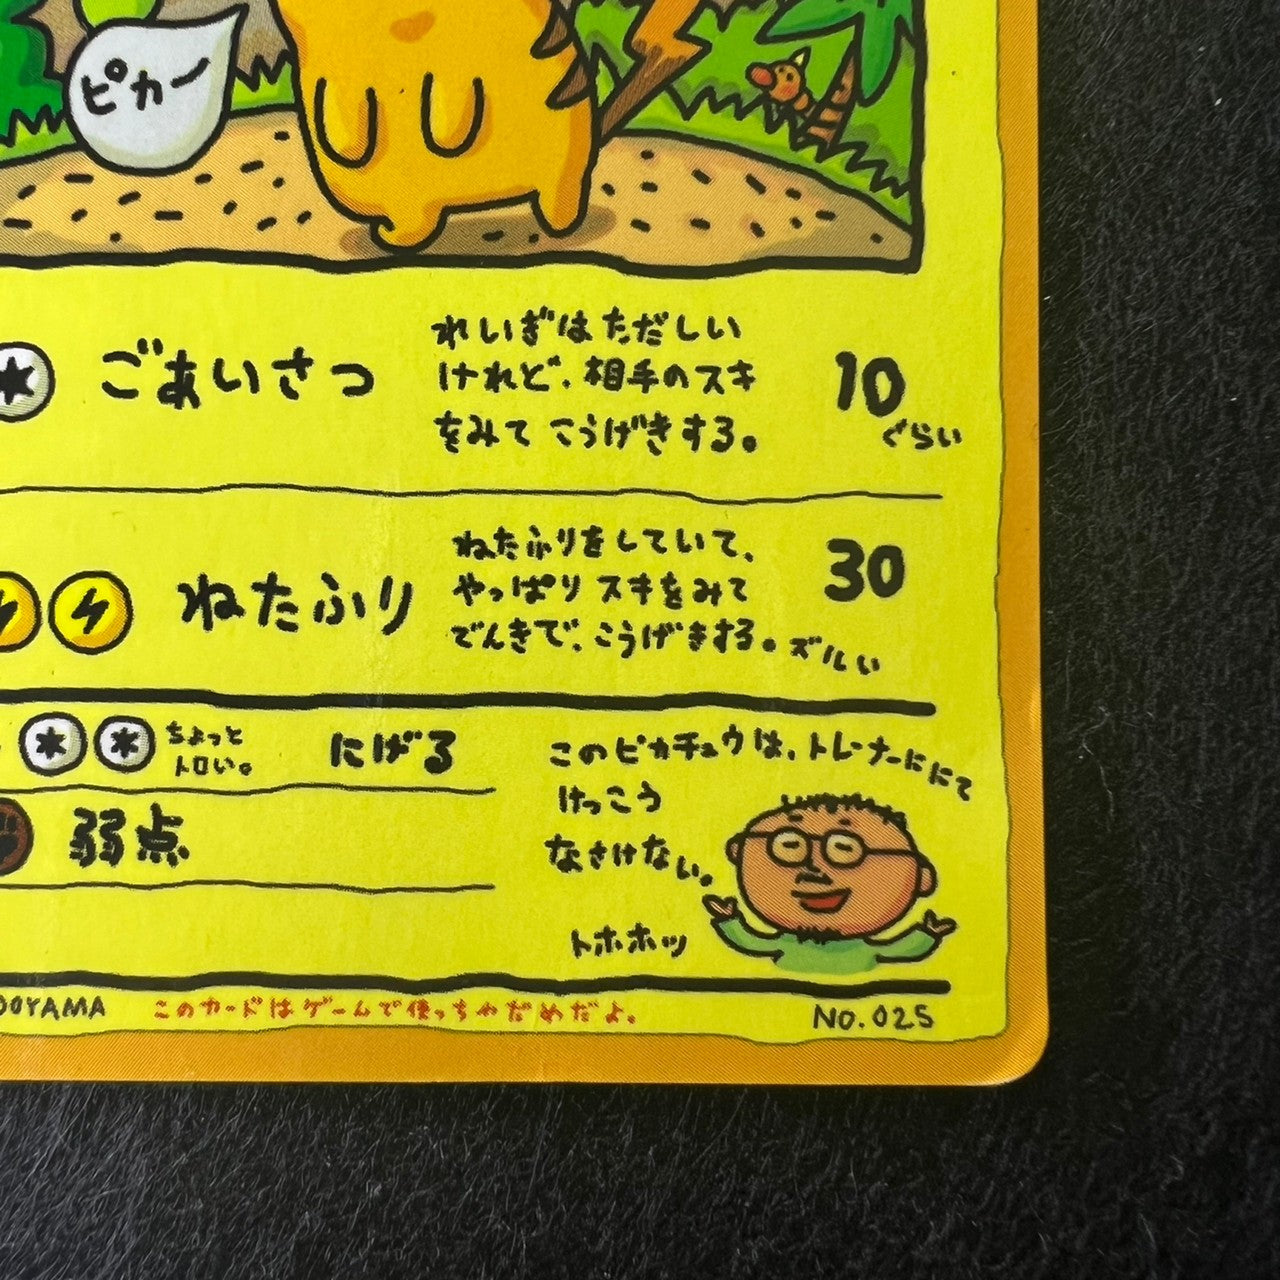 ピカー
ごあいさつ
れいぎはただしい
けれど、相手のスキ
をみて こうげきする。
10
ぐらい
ねたふり
ねたふりをしていて、
やっぱり スキをみて
でんきで、こうげきする。ズルい
30
ちょっと
トロい。
にげる
弱点
このピカチュウは、トレーナーににて
けっこう
なさけない。
トホホッ
OOYAMA
このカードはゲームで使っちゃだめだよ。
NO.025